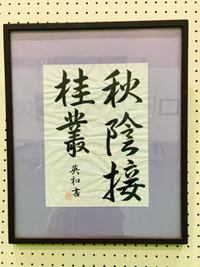 秋陰接
桂叢
英和書